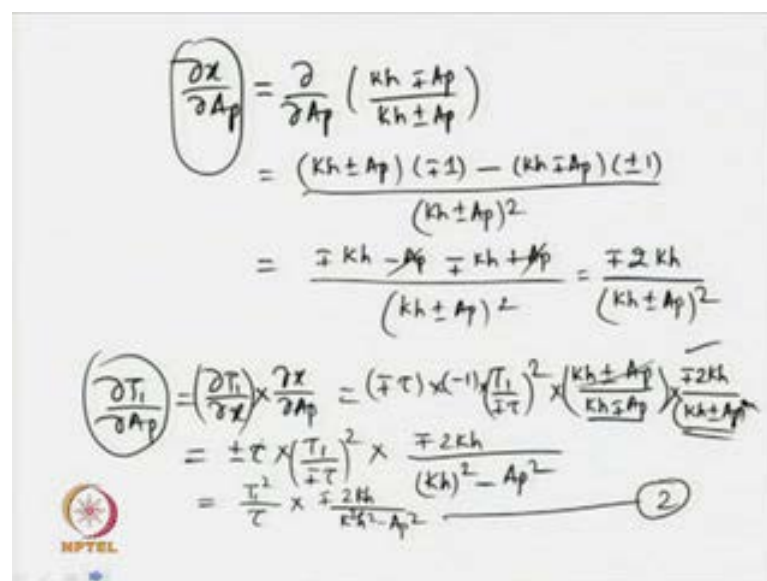 ∂x/∂Ap = ∂/∂Ap ( (Kh ∓ Ap)/(Kh ± Ap) )
= ((Kh ± Ap)(∓1) − (Kh ∓ Ap)(±1))/(Kh ± Ap)²
= (∓Kh − Ap ∓ Kh + Ap)/(Kh ± Ap)² = ∓2Kh/(Kh ± Ap)²
∂T₁/∂Ap = (∂T₁/∂x) × ∂x/∂Ap = (∓τ) × (−1) × (T₁/∓τ)² × ((Kh ± Ap)/(Kh ∓ Ap)) × ∓2Kh/(Kh ± Ap)²
= ±τ × (T₁/∓τ)² × ∓2Kh/((Kh)² − Ap²)
= T₁²/τ × ∓ 2Kh/(K²h² − Ap²) ——— 2
NPTEL